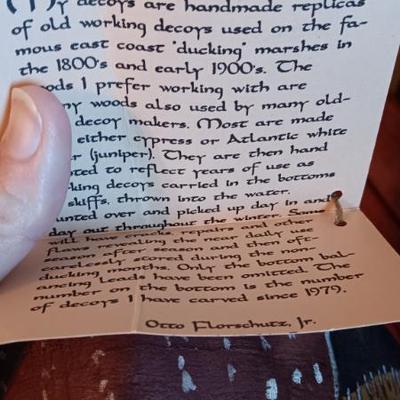 My decoys are handmade replicas
of old working decoys used on the fa-
mous east coast "ducking" marshes in
the 1800's and early 1900's. The
ods I prefer working with are
ny woods also used by many old-
decoy makers. Most are made
either cypress or Atlantic white
r (juniper). They are then hand
ted to reflect years of use as
king decoys carried in the bottoms
skiffs, thrown into the water,
unted over and picked up day in and
day out throughout the winter. Some
will have cracks, repairs and other
flaws revealing the near daily use
season after season and then oft-
carelessly stored during the non-
ducking months. Only the bottom bal-
ancing leads have been omitted. The
number on the bottom is the number
of decoys I have carved since 1979.
Otto Florschutz, Jr.